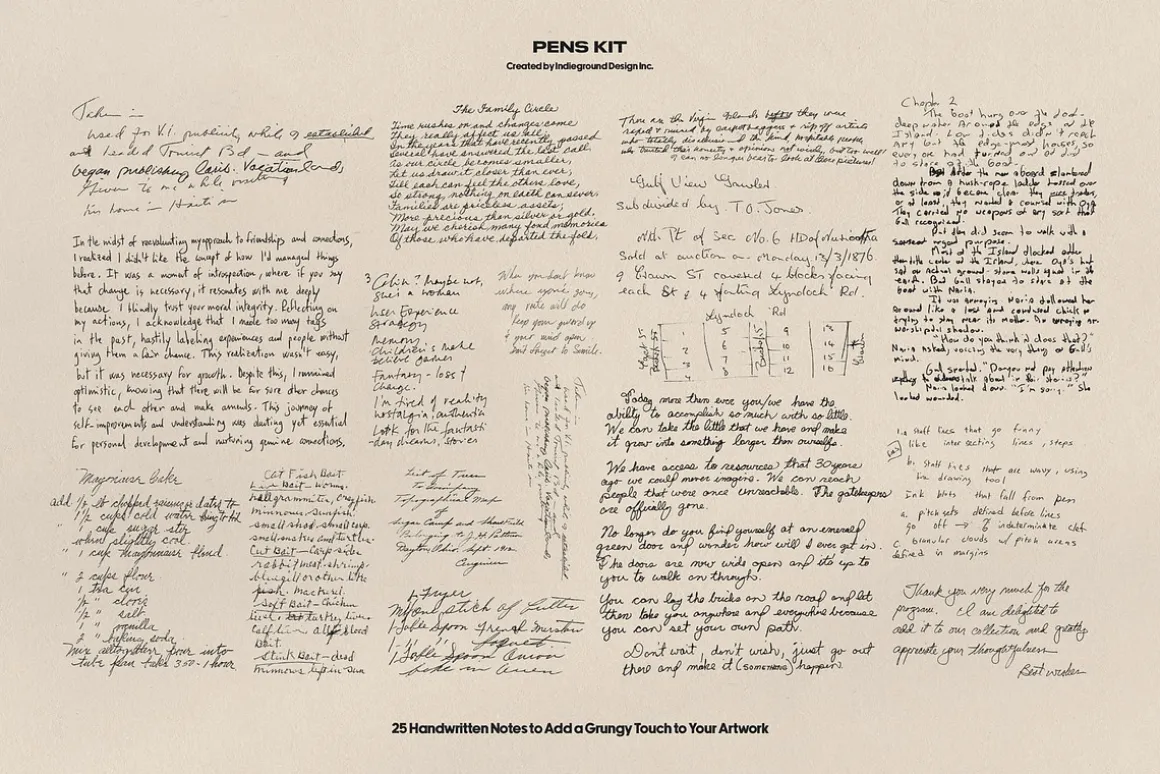 PENS KIT
Created by Indieground Design Inc.
used for V.I. publicity which is established
and head of Tourist Bd — and
began publishing Caris. Vacationland,
his home in Haiti
In the midst of reevaluating my approach to friendships and connections,
I realized I didn't like the concept of how I'd managed things
before. It was a moment of introspection, where if you say
that change is necessary, it resonates with me deeply
because I blindly trust your moral integrity. Reflecting on
my actions, I acknowledge that I made too many tags
in the past, hastily labeling experiences and people without
giving them a fair chance. This realization wasn't easy,
but it was necessary for growth. Despite this, I remained
optimistic, knowing that there will be for sure other chances
to see each other and make amends. This journey of
self-improvements and understanding was daunting yet essential
for personal development and nurturing genuine connections.
Mayonnaise Cake
add 1/2 lb chopped dates to
1 1/2 cups cold water
" cup sugar stir
when slightly cool.
" 1 cup Mayonnaise
" 2 cups flour
1 tsp
1/2 " cloves
1/2 " salt
1 " vanilla
2 " baking soda
Mix altogether pour into
tube pan bake 350 - 1 hour
Cat Fish Bait
Live Bait - worms.
hellgrammites, crayfish
minnows sunfish
small shad - small carp.
Cut Bait - carp sides
rabbit meat - shrimp -
bluegill or other like
fish. Mackerel.
Soft Bait - Chicken
calf liver blood
Bait.
Stink Bait - dead
minnows left in sun
The Family Circle
Time rushes on and changes come
They really affect us all,
In the years that have recently passed
Several have answered the last call.
As our circle becomes smaller,
Let us draw it closer than ever,
Till each can feel the others love,
So strong, nothing on earth can sever.
Families are priceless assets;
More precious than silver or gold.
May we cherish many fond memories
Of those who have departed the fold.
3 Catch? Maybe not,
she's a woman
User Experience
Strategy
Memory
Children's make
believe games
Fantasy - loss &
Change.
I'm tired of reality
nostalgia, authentic
Look for the fantasti
-day dreams, stories
When you don't know
where you're going,
any route will do
Keep your guard up
& your mind open
Don't forget to Smile.
List of Trees
to accompany
Topographical Map
of
Sugar Camp and
Belonging to J.H. Patterson
Dayton Ohio. Sept. 1902
Engineer
1- Fryer
Melt one stick of Butter
1- Table Spoon French Mustard
1- Table Spoon Onion
bake in Oven
These are the Virgin Islands before they were
raped & ruined by carpetbaggers & ripoff artists
who totally disillusion all the kind hospitable people,
who trusted their honesty & opinions not wisely, but too well!
I can no longer bear to look at these pictures!
"Gulf View Gawler
Subdivided by T.O. Jones
with Pt of Sec No. 6 HD of Nuriootpa
Sold at auction on Monday 13/3/1876
9 Crown ST covered 4 blocks facing
each St & 4 fronting Lyndoch Rd.
Lyndoch Rd
1
2
3
4
5
6
7
8
9
10
11
12
13
14
15
16
Today more then ever you/we have the
ability to accomplish so much with so little.
We can take the little that we have and make
it grow into something larger than ourselfs.
We have access to resources that 30 years
ago we could never imagine. We can reach
people that were once unreachable. The gatekeepers
are officially gone.
No longer do you find yourself at an emerald
green door and wonder how will I ever get in.
The doors are now wide open and it's up to
you to walk on through.
You can lay the bricks on the road and let
them take you anywhere and everywhere because
you can set your own path.
Don't wait, don't wish, just go out
there and make it (SOMETHING) happen.
Chapter 2
The boat hung over the dock -
deep water around the edge of the
Island. Low tides didn't reach
any but the edge-most houses, so
everyone had turned out on deck
to stare at the boat.
After the men aboard clambered
down from a hush-rope ladder tossed over
the side it became clear they were traders,
or at least, they wanted a council with Oya.
They carried no weapons of any sort that
Gall recognized.
But they did seem to walk with a
sense of urgent purpose.
Most of the Island flocked after
them to the center of the Island, where Oya's hut
sat on actual ground - stone walls sunk in the
earth. But Gall stayed to stare at the
boat with Naria.
It was annoying. Naria followed her
around like a lost and confused chick
trying to stay near its Mother. An annoying and
worshipful shadow.
"How do you think it does that?"
Naria asked, voicing the very thing on Gall's
mind.
Gall snorted. "Do you not pay attention
Naria looked down. "I'm sorry." She
looked wounded.
a. staff lines that go funny
like intersecting lines, steps
b. staff lines that are wavy, using
the drawing tool
Ink blots that fall from pen
a. pitch gets defined before lines
go off → of indeterminate clef
c. granular clouds w/ pitch areas
defined in margins
Thank you very much for the
program. I am delighted to
add it to our collection and greatly
appreciate your thoughtfulness
Best wishes
25 Handwritten Notes to Add a Grungy Touch to Your Artwork